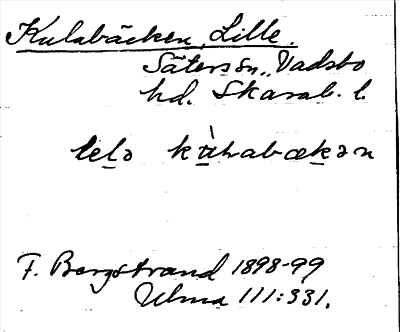 Kulabäcken, Lille.
Sätersön, Vadsbo
hd. Skarab. l.
lɩlə kùlrabækən
F. Bergstrand 1898-99
Ulma 111:331.